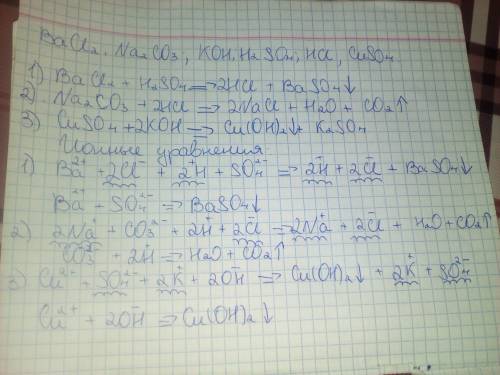 BaCl₂, Na₂CO₃, KOH, H₂SO₄, HCl, CuSO₄
1) BaCl₂ + H₂SO₄ ⇒ 2HCl + BaSO₄↓
2) Na₂CO₃ + 2HCl ⇒ 2NaCl + H₂O + CO₂↑
3) CuSO₄ + 2KOH ⇒ Cu(OH)₂↓ + K₂SO₄
Ионные уравнения
1) Ba²⁺ + 2Cl⁻ + 2H⁺ + SO₄²⁻ ⇒ 2H⁺ + 2Cl⁻ + BaSO₄↓
Ba²⁺ + SO₄²⁻ ⇒ BaSO₄↓
2) 2Na⁺ + CO₃²⁻ + 2H⁺ + 2Cl⁻ ⇒ 2Na⁺ + 2Cl⁻ + H₂O + CO₂↑
CO₃²⁻ + 2H⁺ ⇒ H₂O + CO₂↑
3) Cu²⁺ + SO₄²⁻ + 2K⁺ + 2OH⁻ ⇒ Cu(OH)₂↓ + 2K⁺ + SO₄²⁻
Cu²⁺ + 2OH⁻ ⇒ Cu(OH)₂↓